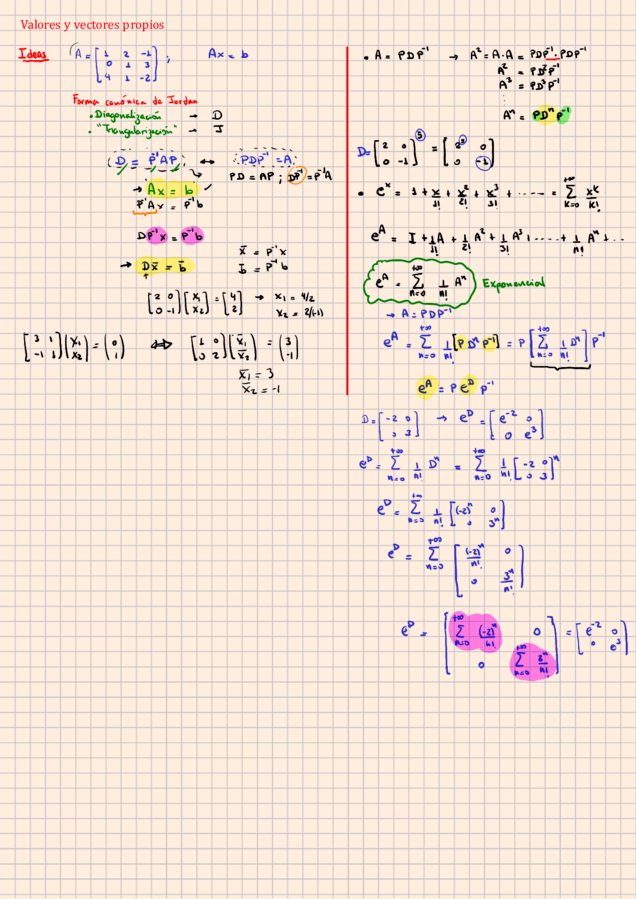 Valores y vectores propios
Ideas
A = [1 2 -1; 0 1 3; 4 1 -2] ; Ax = b
Forma canónica de Jordan
• Diagonalización → D
• "Triangularización" → J
D = P⁻¹AP ↔ PDP⁻¹ = A
PD = AP ; DP⁻¹ = P⁻¹A
→ Ax = b
P⁻¹Ax = P⁻¹b
DP⁻¹x = P⁻¹b
x̄ = P⁻¹x
b̄ = P⁻¹b
→ Dx̄ = b̄
[2 0; 0 -1] (x₁; x₂) = [4; 2] → x₁ = 4/2
x₂ = 2/(-1)
[3 1; -1 1] (x₁; x₂) = (0; 1) ⇔ [1 0; 0 2] (x̄₁; x̄₂) = (3; -1)
x̄₁ = 3
x̄₂ = -1
• A = PDP⁻¹ → A² = A·A = PDP⁻¹·PDP⁻¹
A² = PD²P⁻¹
A³ = PD³P⁻¹
⋮
Aⁿ = PDⁿP⁻¹
D = [2 0; 0 -1]⁵ = [2⁵ 0; 0 -1]
• eˣ = 1 + x/1! + x²/2! + x³/3! + ...... = Σ_{k=0}^{+∞} xᵏ/k!
e^A = I + 1/1! A + 1/2! A² + 1/3! A³ + .... + 1/n! Aⁿ ...
e^A = Σ_{n=0}^{+∞} 1/n! Aⁿ Exponencial
→ A = PDP⁻¹
e^A = Σ_{n=0}^{+∞} 1/n! [P Dⁿ P⁻¹] = P [Σ_{n=0}^{+∞} 1/n! Dⁿ] P⁻¹
e^A = P e^D P⁻¹
D = [-2 0; 0 3] → e^D = [e⁻² 0; 0 e³]
e^D = Σ_{n=0}^{+∞} 1/n! Dⁿ = Σ_{n=0}^{+∞} 1/n! [-2 0; 0 3]ⁿ
e^D = Σ_{n=0}^{+∞} 1/n! [(-2)ⁿ 0; 0 3ⁿ]
e^D = Σ_{n=0}^{+∞} [(-2)ⁿ/n! 0; 0 3ⁿ/n!]
e^D = [Σ_{n=0}^{+∞} (-2)ⁿ/n! 0; 0 Σ_{n=0}^{+∞} 3ⁿ/n!] = [e⁻² 0; 0 e³]